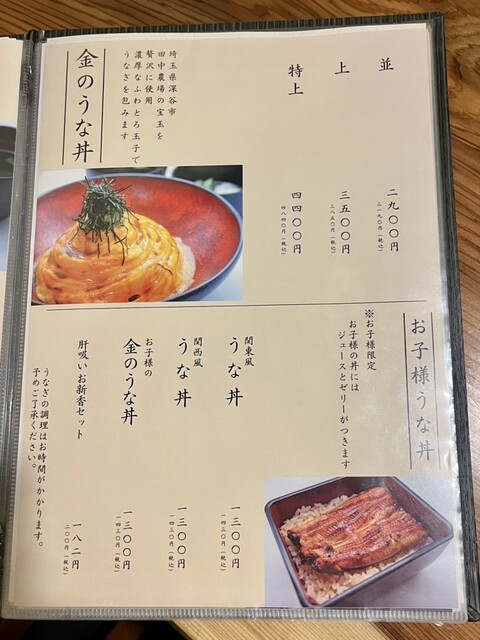 金のうな丼
埼玉県深谷市
田中農場の宝玉を
贅沢に使用
濃厚なふわとろ玉子で
うなぎを包みます
並
二九〇〇円
三一九〇円(税込)
上
三五〇〇円
三八五〇円(税込)
特上
四四〇〇円
四八四〇円(税込)
お子様うな丼
※お子様限定
お子様の丼には
ジュースとゼリーがつきます
関東風
うな丼
一三〇〇円
一四三〇円(税込)
関西風
うな丼
一三〇〇円
一四三〇円(税込)
お子様の
金のうな丼
一三〇〇円
一四三〇円(税込)
肝吸い・お新香セット
一八二円
二〇〇円(税込)
うなぎの調理はお時間がかかります。
予めご了承ください。